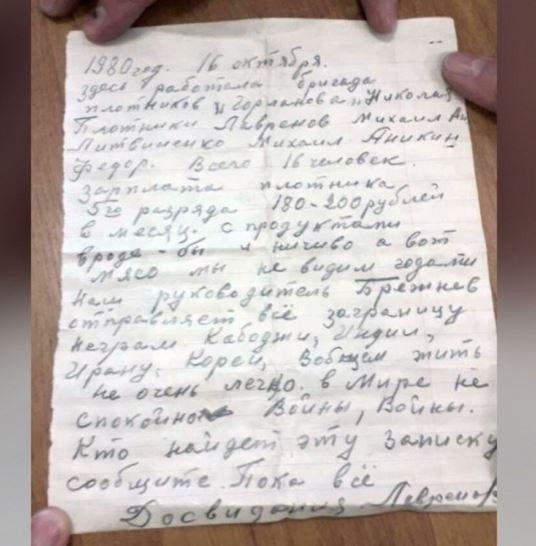 1980 год. 16 октября.
здесь работала бригада
плотников „Горланова„ Николая
Плотники Лавренов Михаил Ан
Литвиненко Михаил Аникин
Федор. Всего 16 человек.
Зарплата плотника
5го разряда 180-200 рублей
в месяц. с продуктами
вроде-бы и ничиво а вот
мясо мы не видим годами
наш руководитель Брежнев
отправляет всё заграницу
неграм Кабоджи, Индии,
Ирану, Кореи, Вобщем жить
не очень легко. в Мире не
спокойно Войны, Войны.
Кто найдет эту записку
сообщите. Пока всё
Досвидания. Лавренов